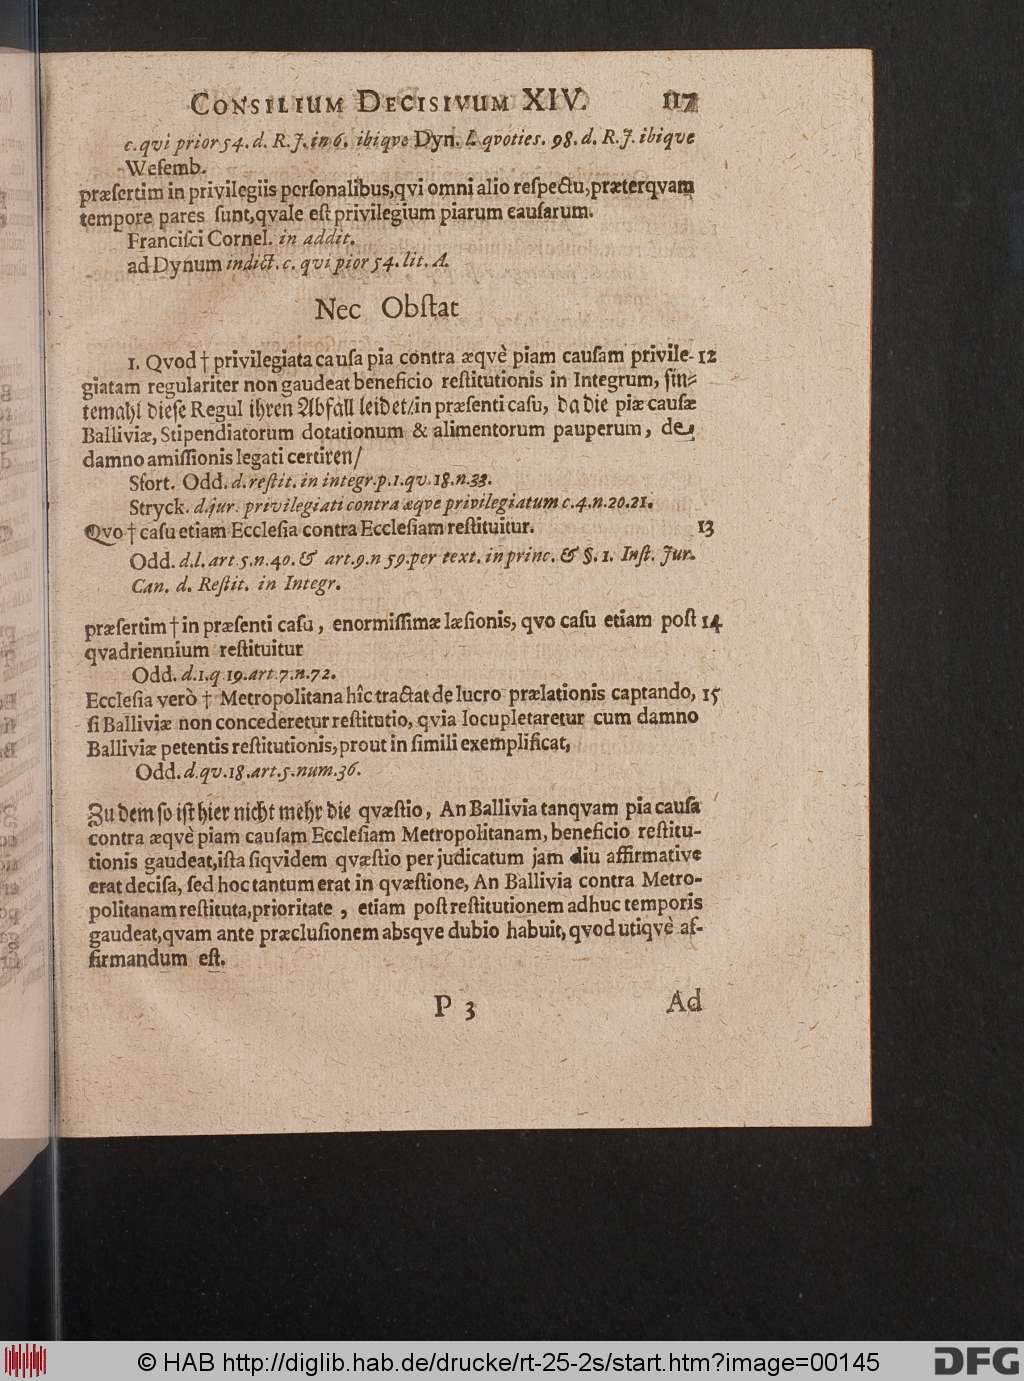 CONSILIUM DECISIVUM XIV. 117
c. qvi prior 54. d. R. J. in 6. ibiqve Dyn. l. qvoties. 98. d. R. J. ibiqve
Weſemb.
præſertim in privilegiis perſonalibus, qvi omni alio reſpectu, præterqvam
tempore pares ſunt, qvale eſt privilegium piarum cauſarum.
Franciſci Cornel. in addit.
ad Dynum in dict. c. qvi pior 54. lit. A.
Nec Obſtat
1. Qvod † privilegiata cauſa pia contra æqvè piam cauſam privile- 12
giatam regulariter non gaudeat beneficio reſtitutionis in Integrum, ſin⸗
temahl dieſe Regul ihren Abfall leidet/ in præſenti caſu, da die piæ cauſæ
Balliviæ, Stipendiatorum dotationum & alimentorum pauperum, de
damno amiſſionis legati certiren/
Sfort. Odd. d. reſtit. in integr. p. 1. qv. 18. n. 33.
Stryck. d. jur. privilegiati contra æqve privilegiatum c. 4. n. 20. 21.
Qvo † caſu etiam Eccleſia contra Eccleſiam reſtituitur. 13
Odd. d. l. art 5. n. 40. & art. 9. n 59. per text. in princ. & §. 1. Inſt. Jur.
Can. d. Reſtit. in Integr.
præſertim † in præſenti caſu, enormiſſimæ læſionis, qvo caſu etiam poſt 14
qvadriennium reſtituitur
Odd. d. 1. q 19. art. 7. n. 72.
Eccleſia verò † Metropolitana hîc tractat de lucro prælationis captando, 15
ſi Balliviæ non concederetur reſtitutio, qvia locupletaretur cum damno
Balliviæ petentis reſtitutionis, prout in ſimili exemplificat,
Odd. d. qv. 18. art. 5. num. 36.
Zu dem ſo iſt hier nicht mehr die qvæſtio, An Ballivia tanqvam pia cauſa
contra æqvè piam cauſam Eccleſiam Metropolitanam, beneficio reſtitu-
tionis gaudeat, iſta ſiqvidem qvæſtio per judicatum jam diu affirmative
erat deciſa, ſed hoc tantum erat in qvæſtione, An Ballivia contra Metro-
politanam reſtituta, prioritate, etiam poſt reſtitutionem adhuc temporis
gaudeat, qvam ante præcluſionem absqve dubio habuit, qvod utiqvè af-
firmandum eſt.
P 3 Ad
© HAB http://diglib.hab.de/drucke/rt-25-2s/start.htm?image=00145
DFG